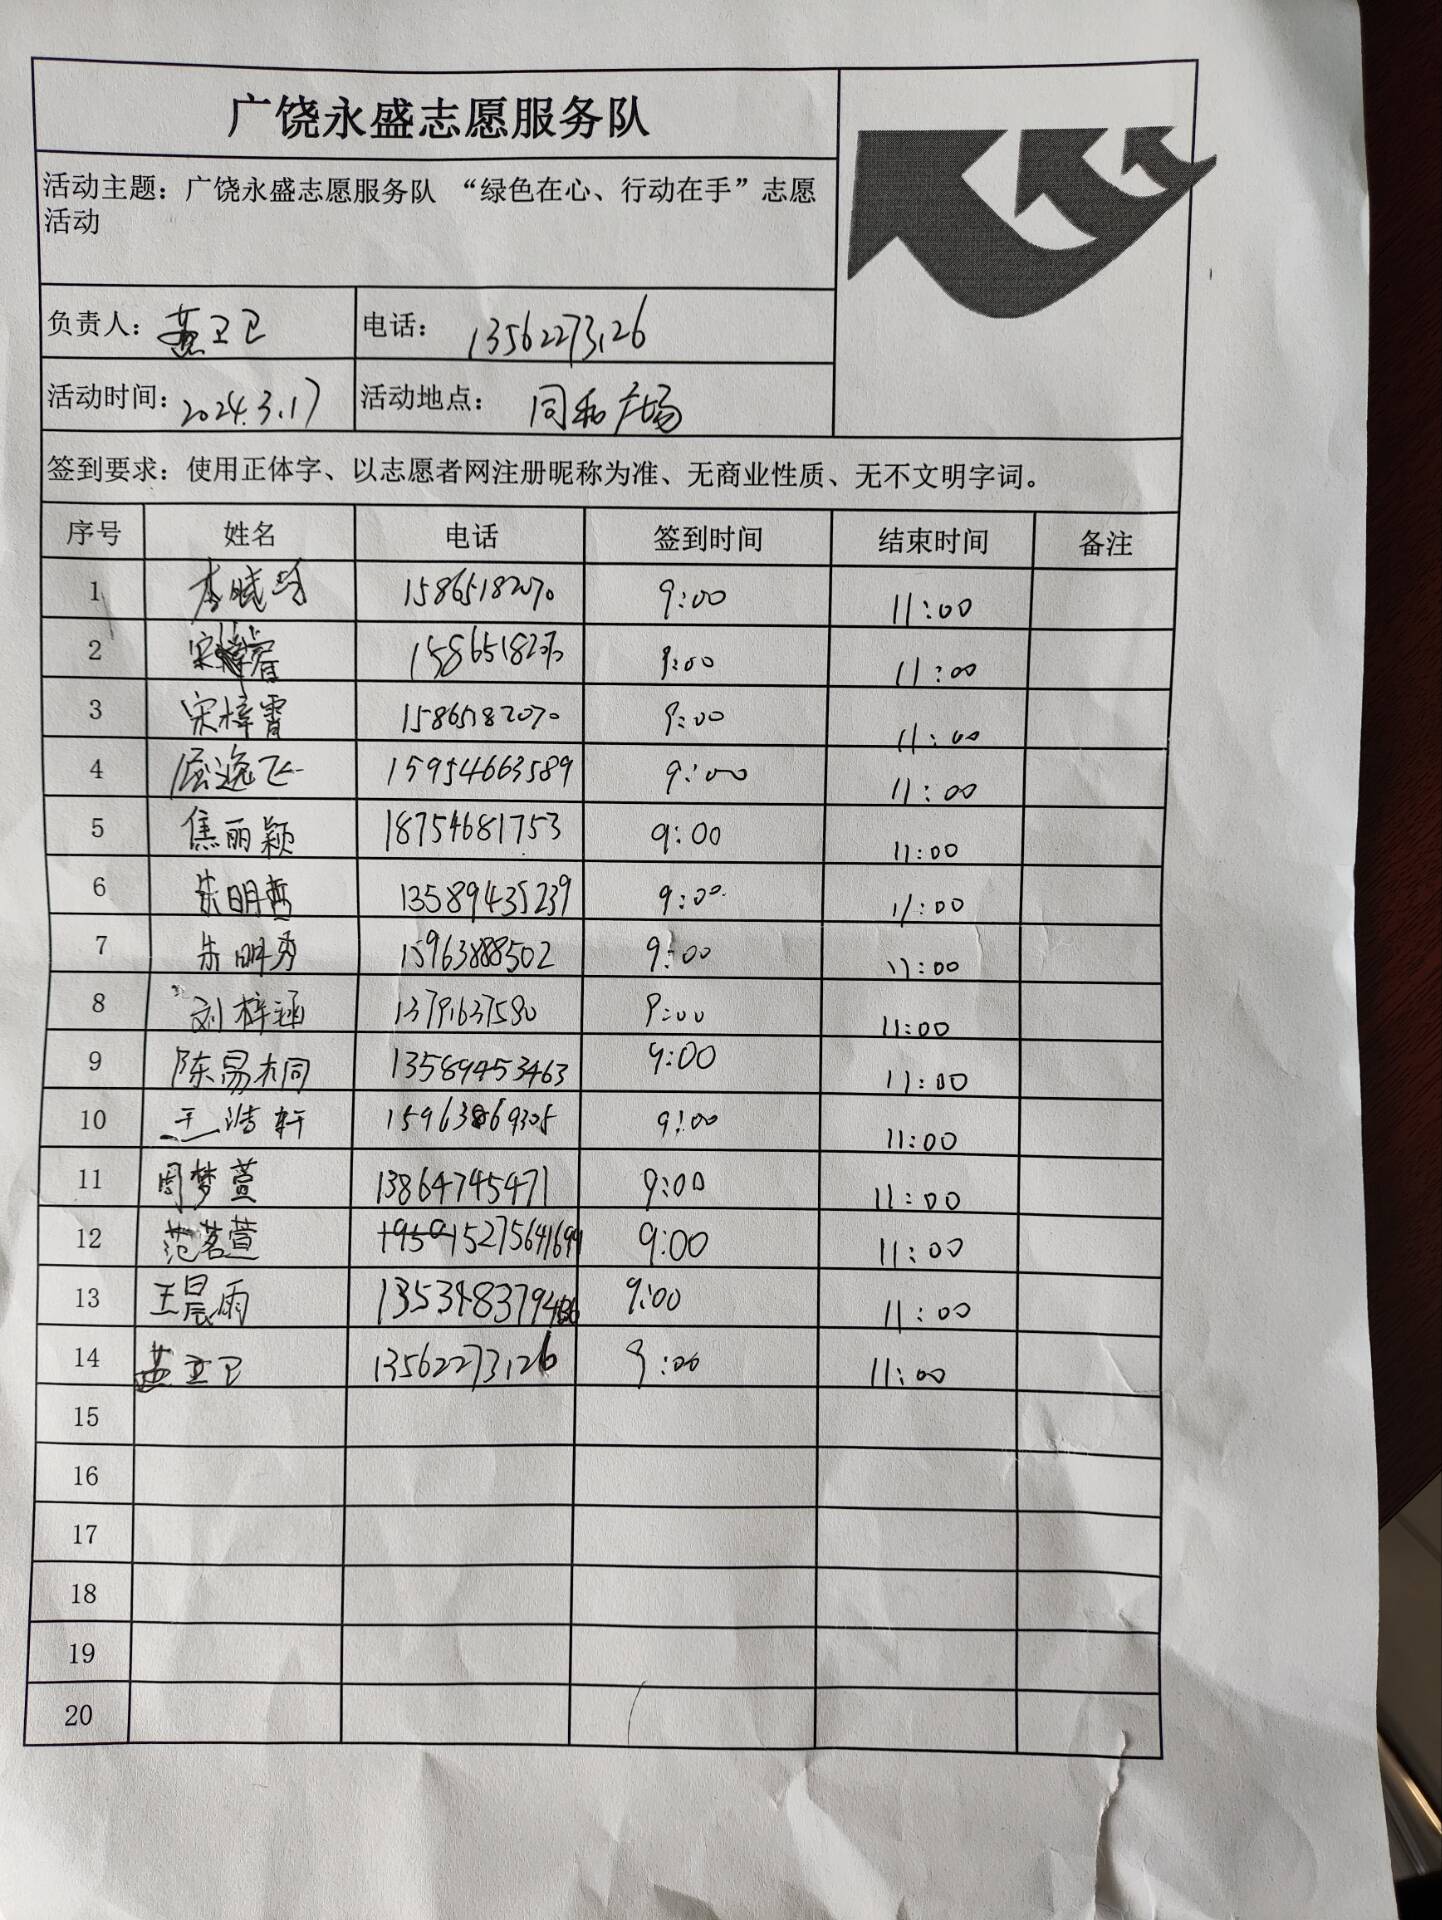 广饶永盛志愿服务队
活动主题：广饶永盛志愿服务队 “绿色在心、行动在手”志愿
活动
负责人： 电话： 13562273126
活动时间：2024.3.17 活动地点： 同和广场
签到要求：使用正体字、以志愿者网注册昵称为准、无商业性质、无不文明字词。
序号 姓名 电话 签到时间 结束时间 备注
1 李晓 15865182070 9:00 11:00
2 宋 15865182070 9:00 11:00
3 宋梓霄 15865182070 9:00 11:00
4 屈逸飞 15954663589 9:00 11:00
5 焦丽颖 18754681753 9:00 11:00
6 朱明哲 13589435239 9:00 11:00
7 朱明秀 15963888502 9:00 11:00
8 刘梓涵 13791637580 9:00 11:00
9 陈易木同 13589453463 9:00 11:00
10 王浩轩 15963869305 9:00 11:00
11 周梦萱 13864745471 9:00 11:00
12 范茗萱 15275641699 9:00 11:00
13 王晨雨 9:00 11:00
14 13562273126 9:00 11:00
15
16
17
18
19
20